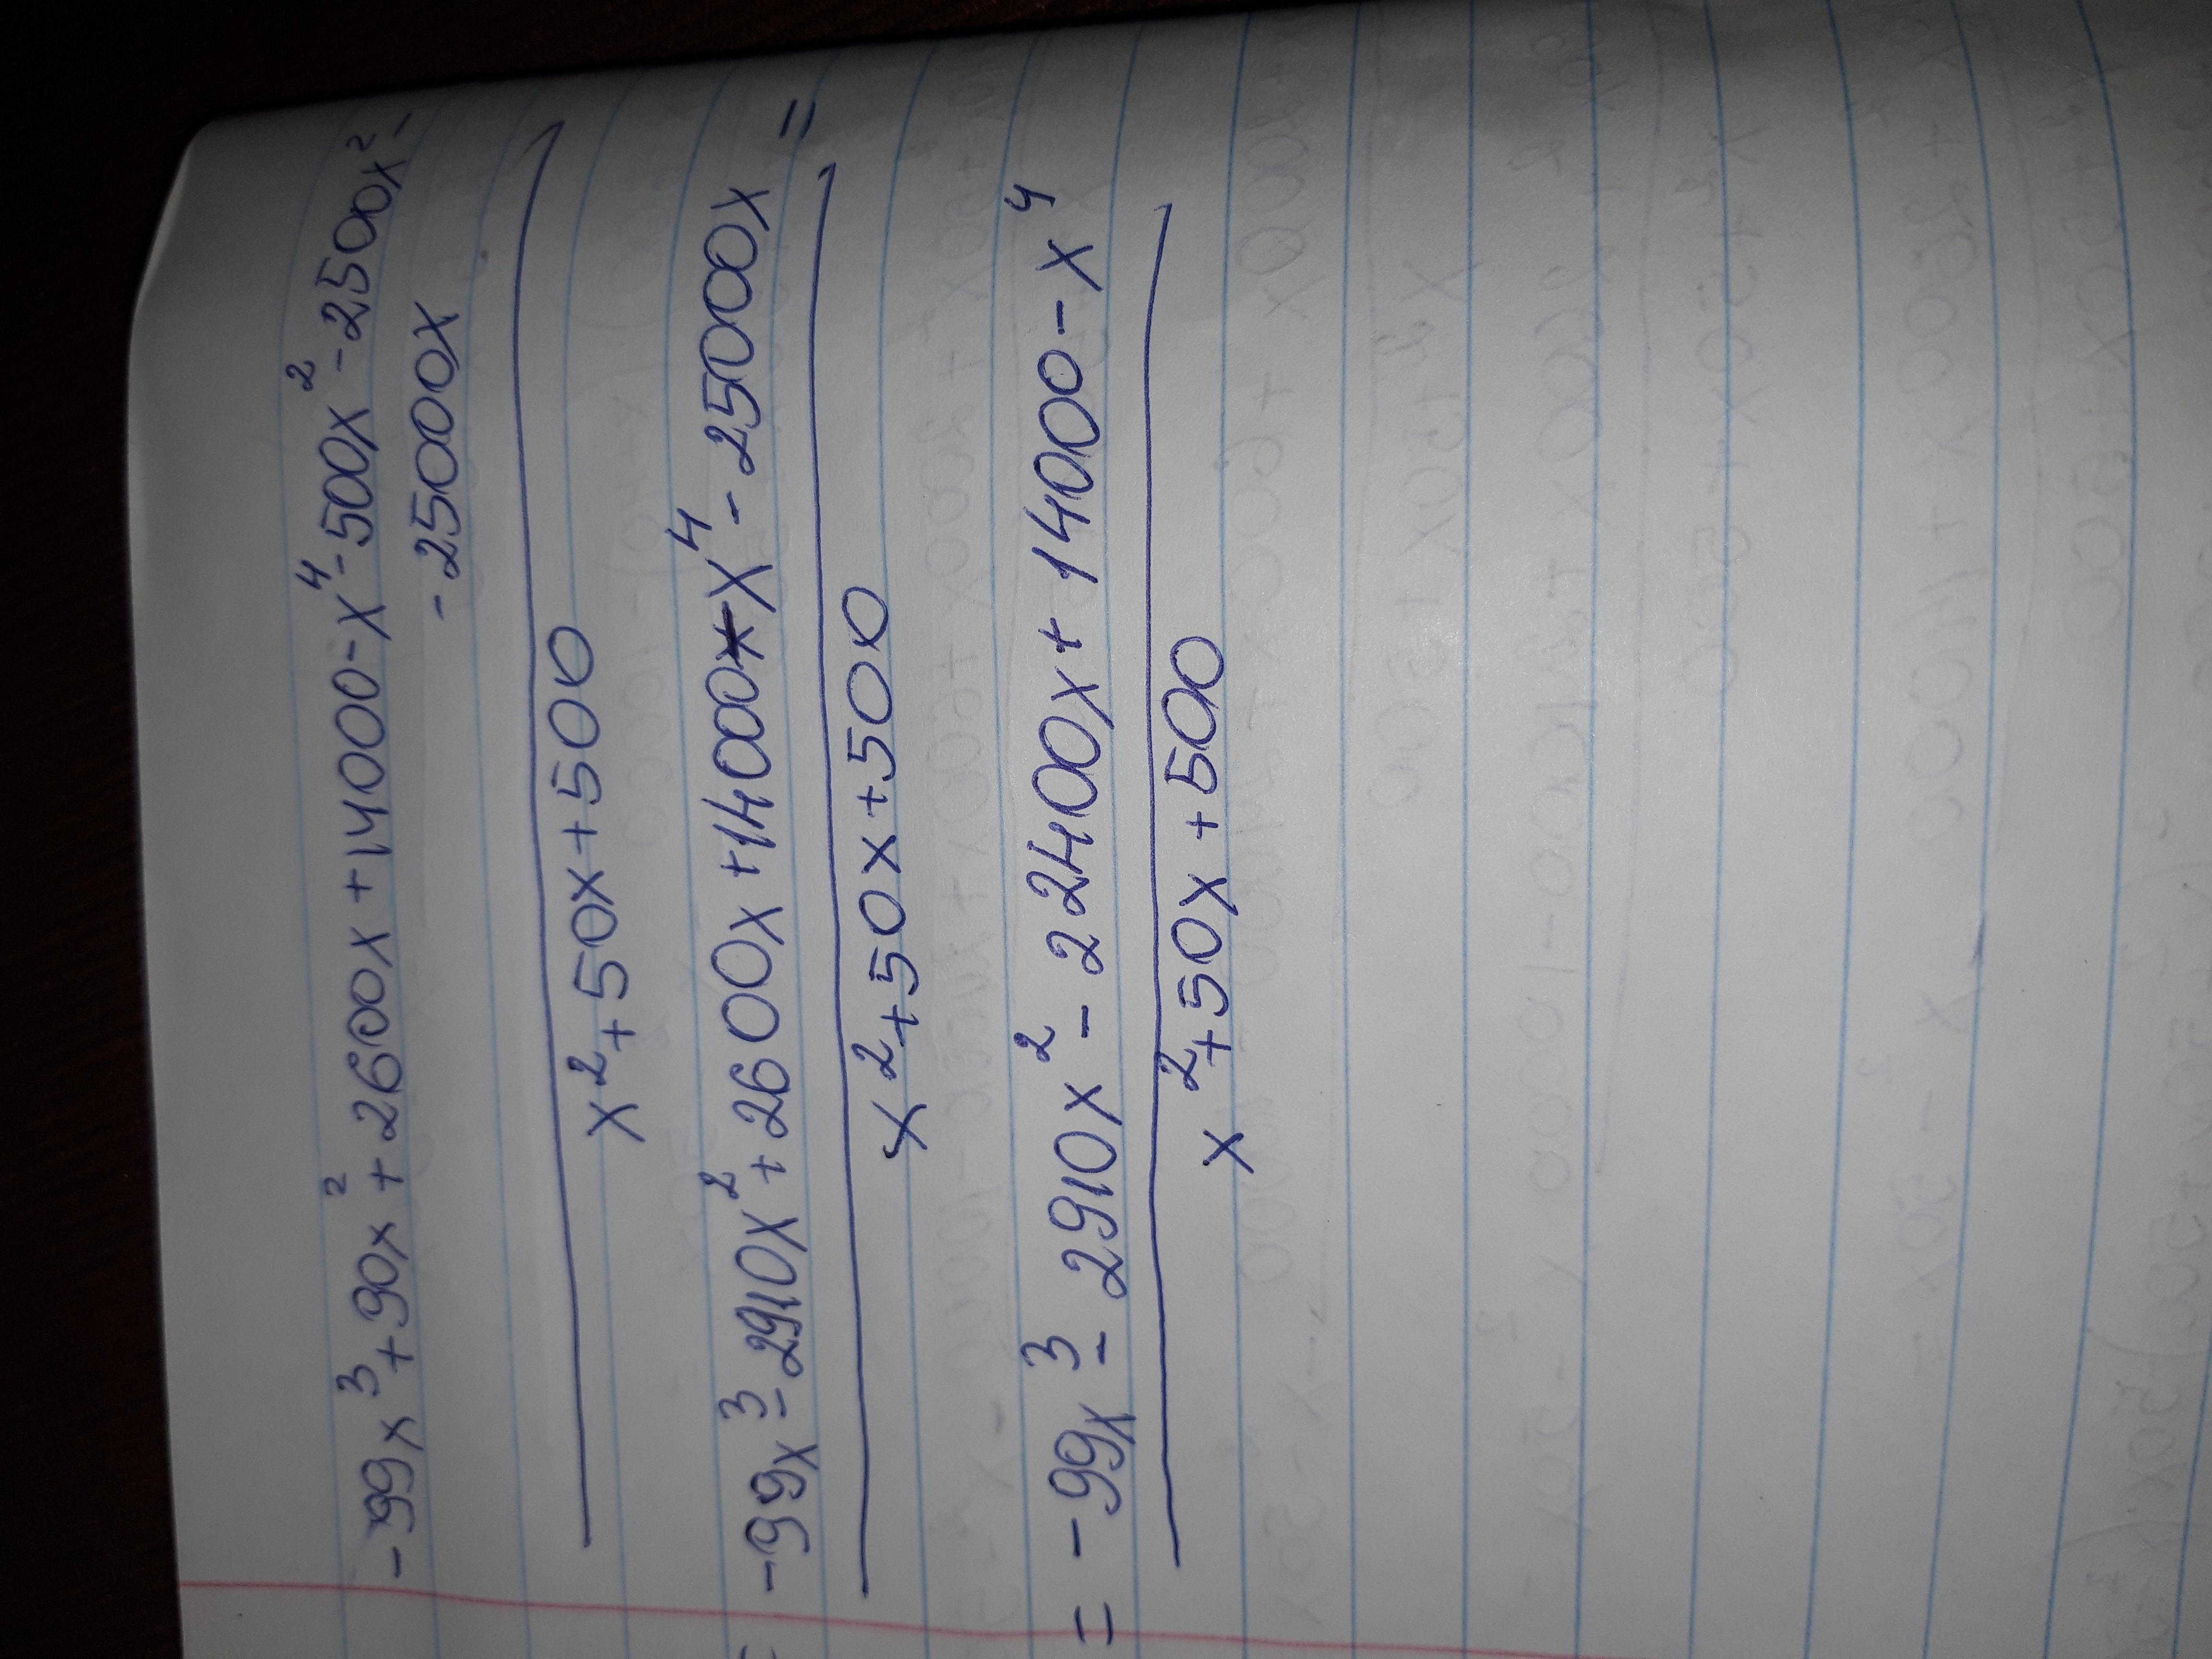 -99x³+90x²+2600x+14000-x⁴-500x²-2500x²-
-25000x
x²+50x+500
= -99x³-2910x²+2600x+14000-x⁴-25000x =
x²+50x+500
= -99x³-2910x²-22400x+14000-x⁴
x²+50x+500